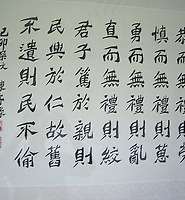 慎而無禮則葸
勇而無禮則亂
直而無禮則絞
君子篤於親則
民興於仁故舊
不遺則民不偷
己卯